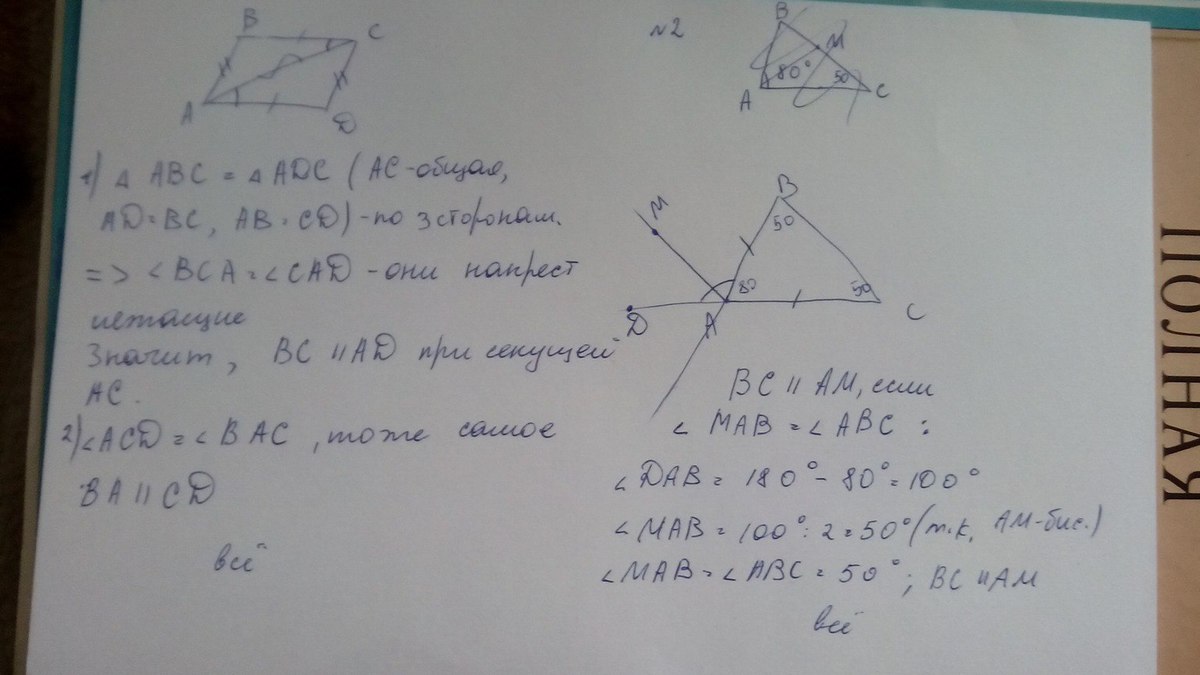 B
C
A
D
1) △ ABC = △ ADC (AC-общая,
AD=BC, AB=CD) - по 3 сторонам.
=> ∠BCA = ∠CAD - они накрест
лежащие
Значит, BC || AD при секущей
AC.
2) ∠ACD = ∠BAC, тоже самое
BA || CD
всё
№2
B
M
80°
50
A
C
B
50
M
80
50
D
A
C
BC || AM, если
∠ MAB = ∠ABC :
∠DAB = 180° - 80° = 100°
∠MAB = 100° : 2 = 50° (т.к. AM-бис.)
∠MAB = ∠ABC = 50°; BC || AM
всё
ПОЛНАЯ